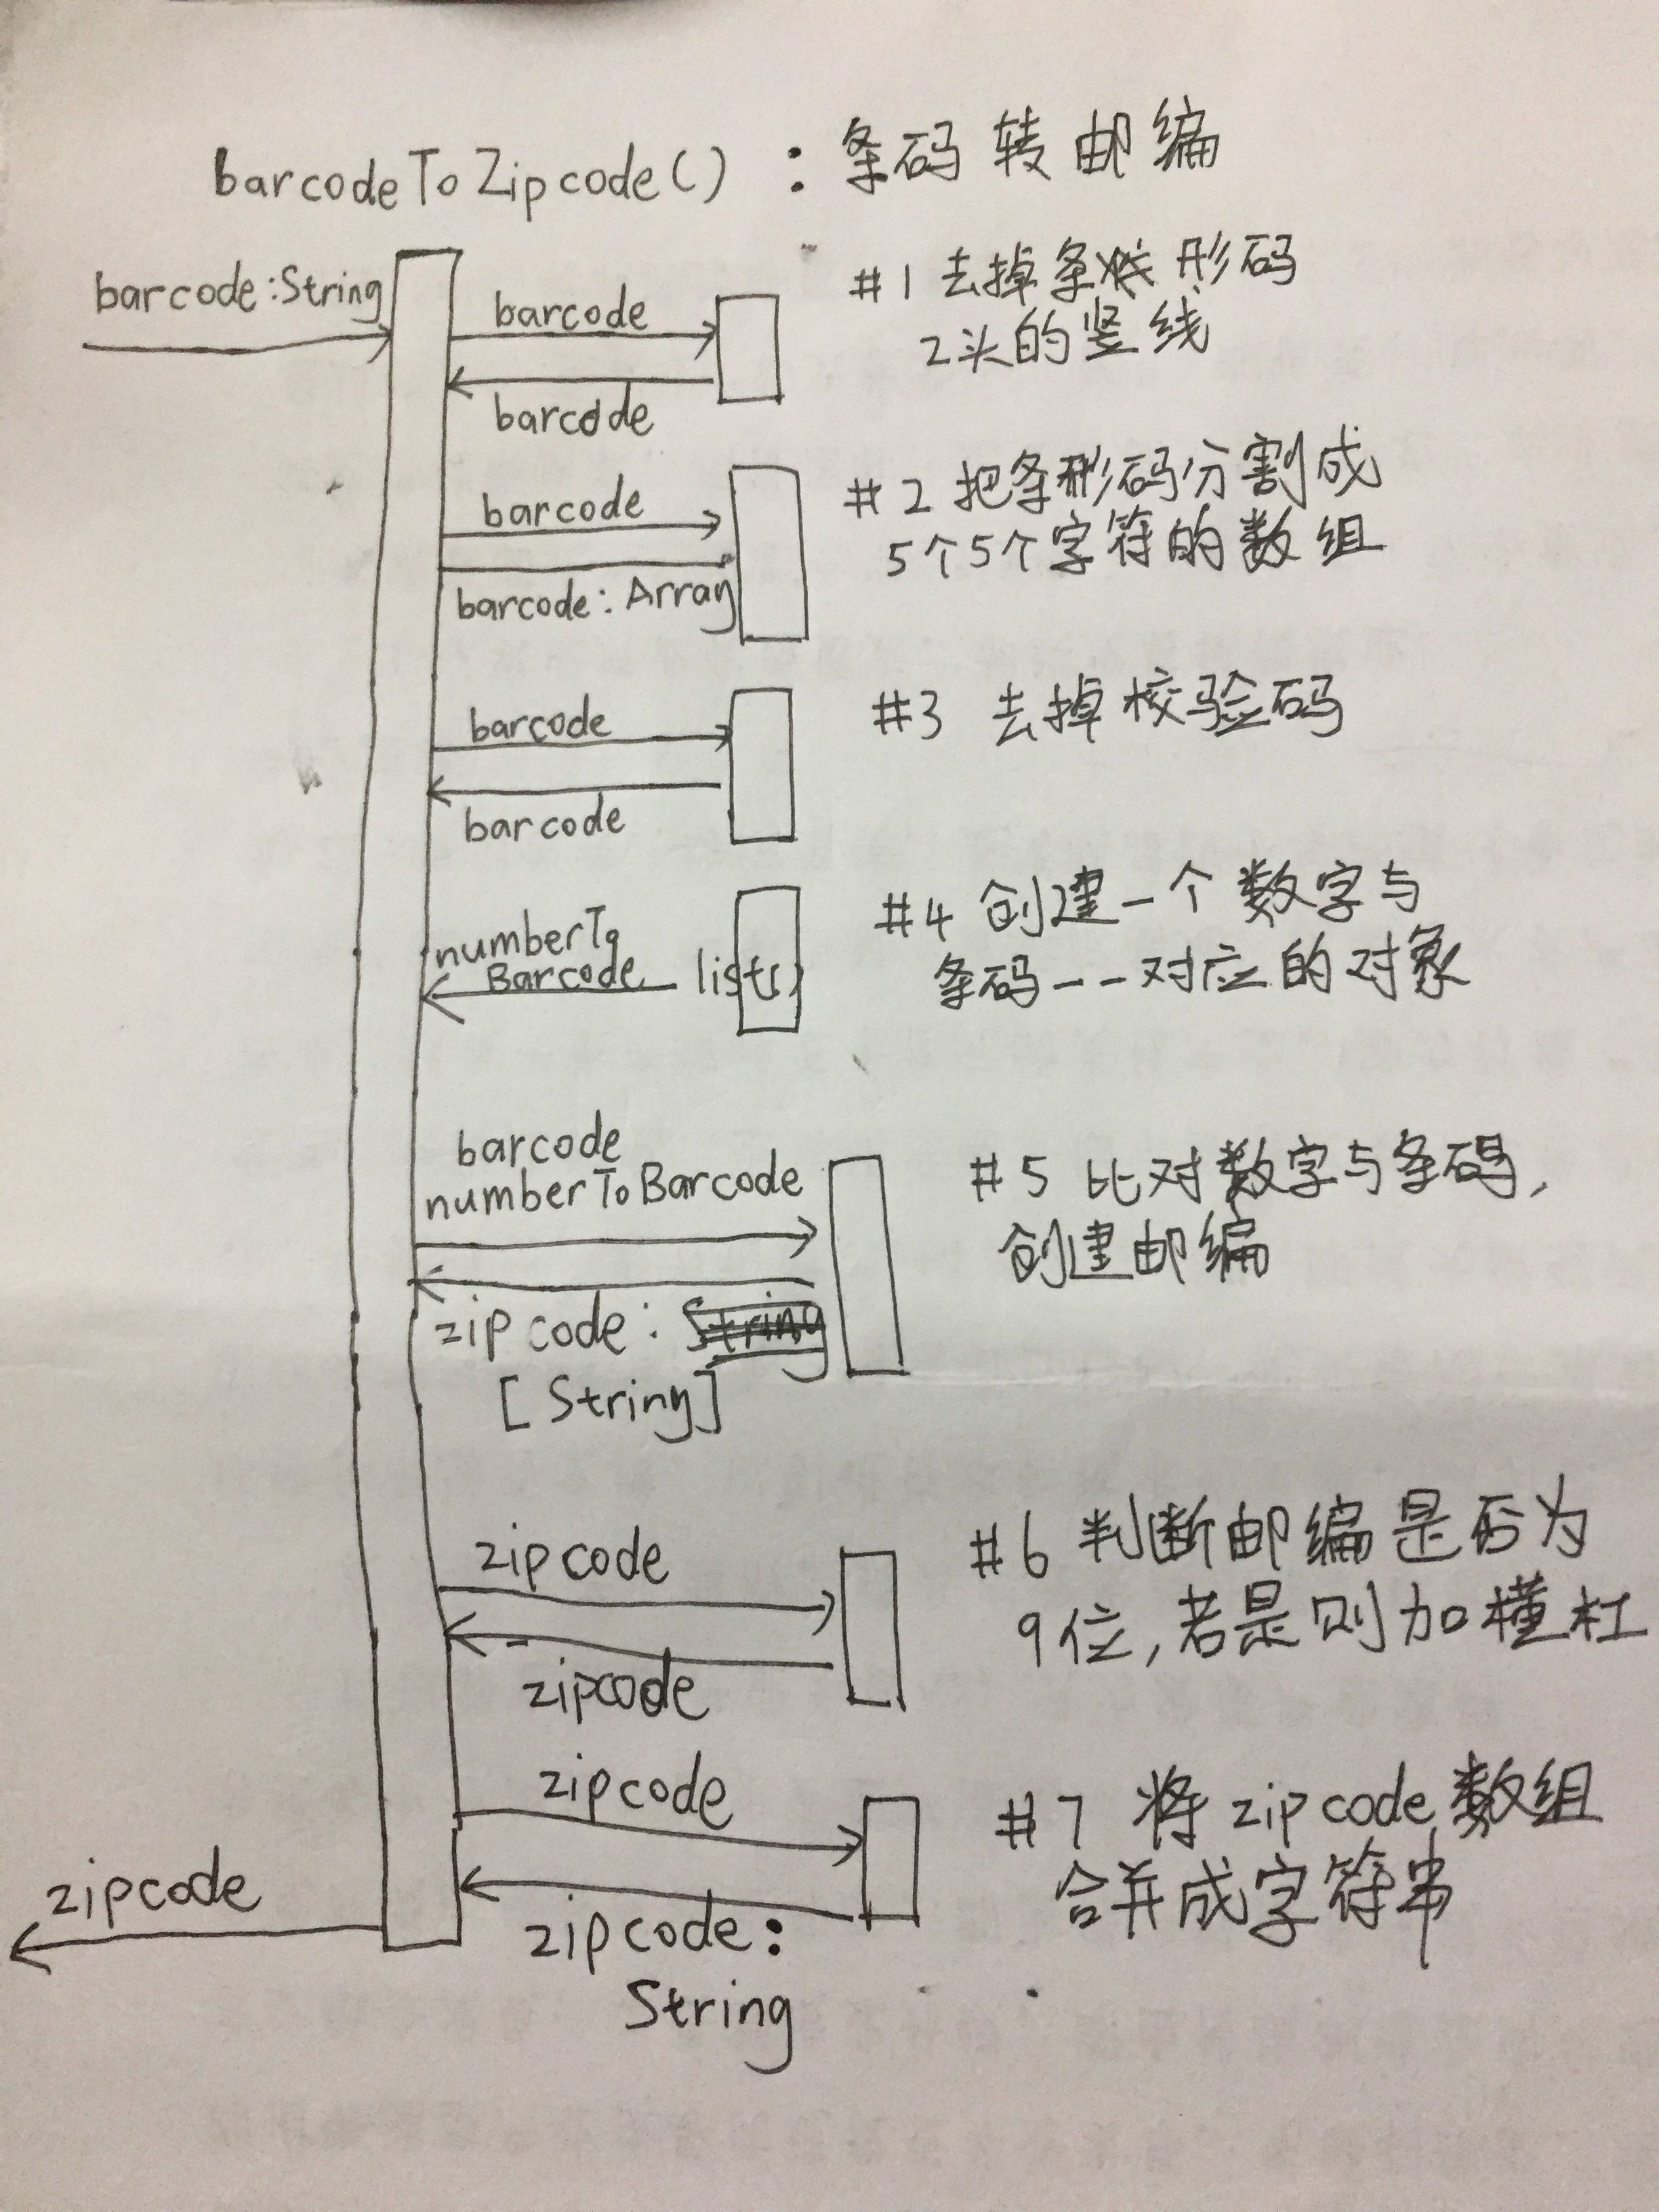 barcodeToZipcode() : 条码转邮编
barcode:String
barcode
barcode
#1 去掉条形码
2头的竖线
barcode
barcode: Array
#2 把条形码分割成
5个5个字符的数组
barcode
barcode
#3 去掉校验码
numberTo
Barcode lists
#4 创建一个数字与
条码一一对应的对象
barcode
numberToBarcode
zipcode: String
[String]
#5 比对数字与条码,
创建邮编
zipcode
zipcode
#6 判断邮编是否为
9位,若是则加横杠
zipcode
zipcode:
String
#7 将zipcode数组
合并成字符串
zipcode